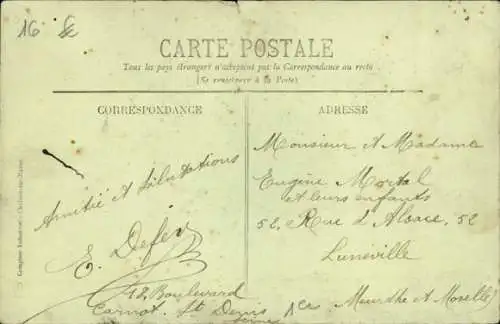 16
CARTE POSTALE
Tous les pays étrangers n'acceptent pas la Correspondance au recto
(Se renseigner à la Poste)
CORRESPONDANCE
ADRESSE
Amitié et Salutations
E. Defer
48, Boulevard
Carnot. St Denis
Seine
Monsieur et Madame
Eugène Mortal
et leurs enfants
52, Rue d'Alsace, 52
Lunéville
Meurthe et Moselle